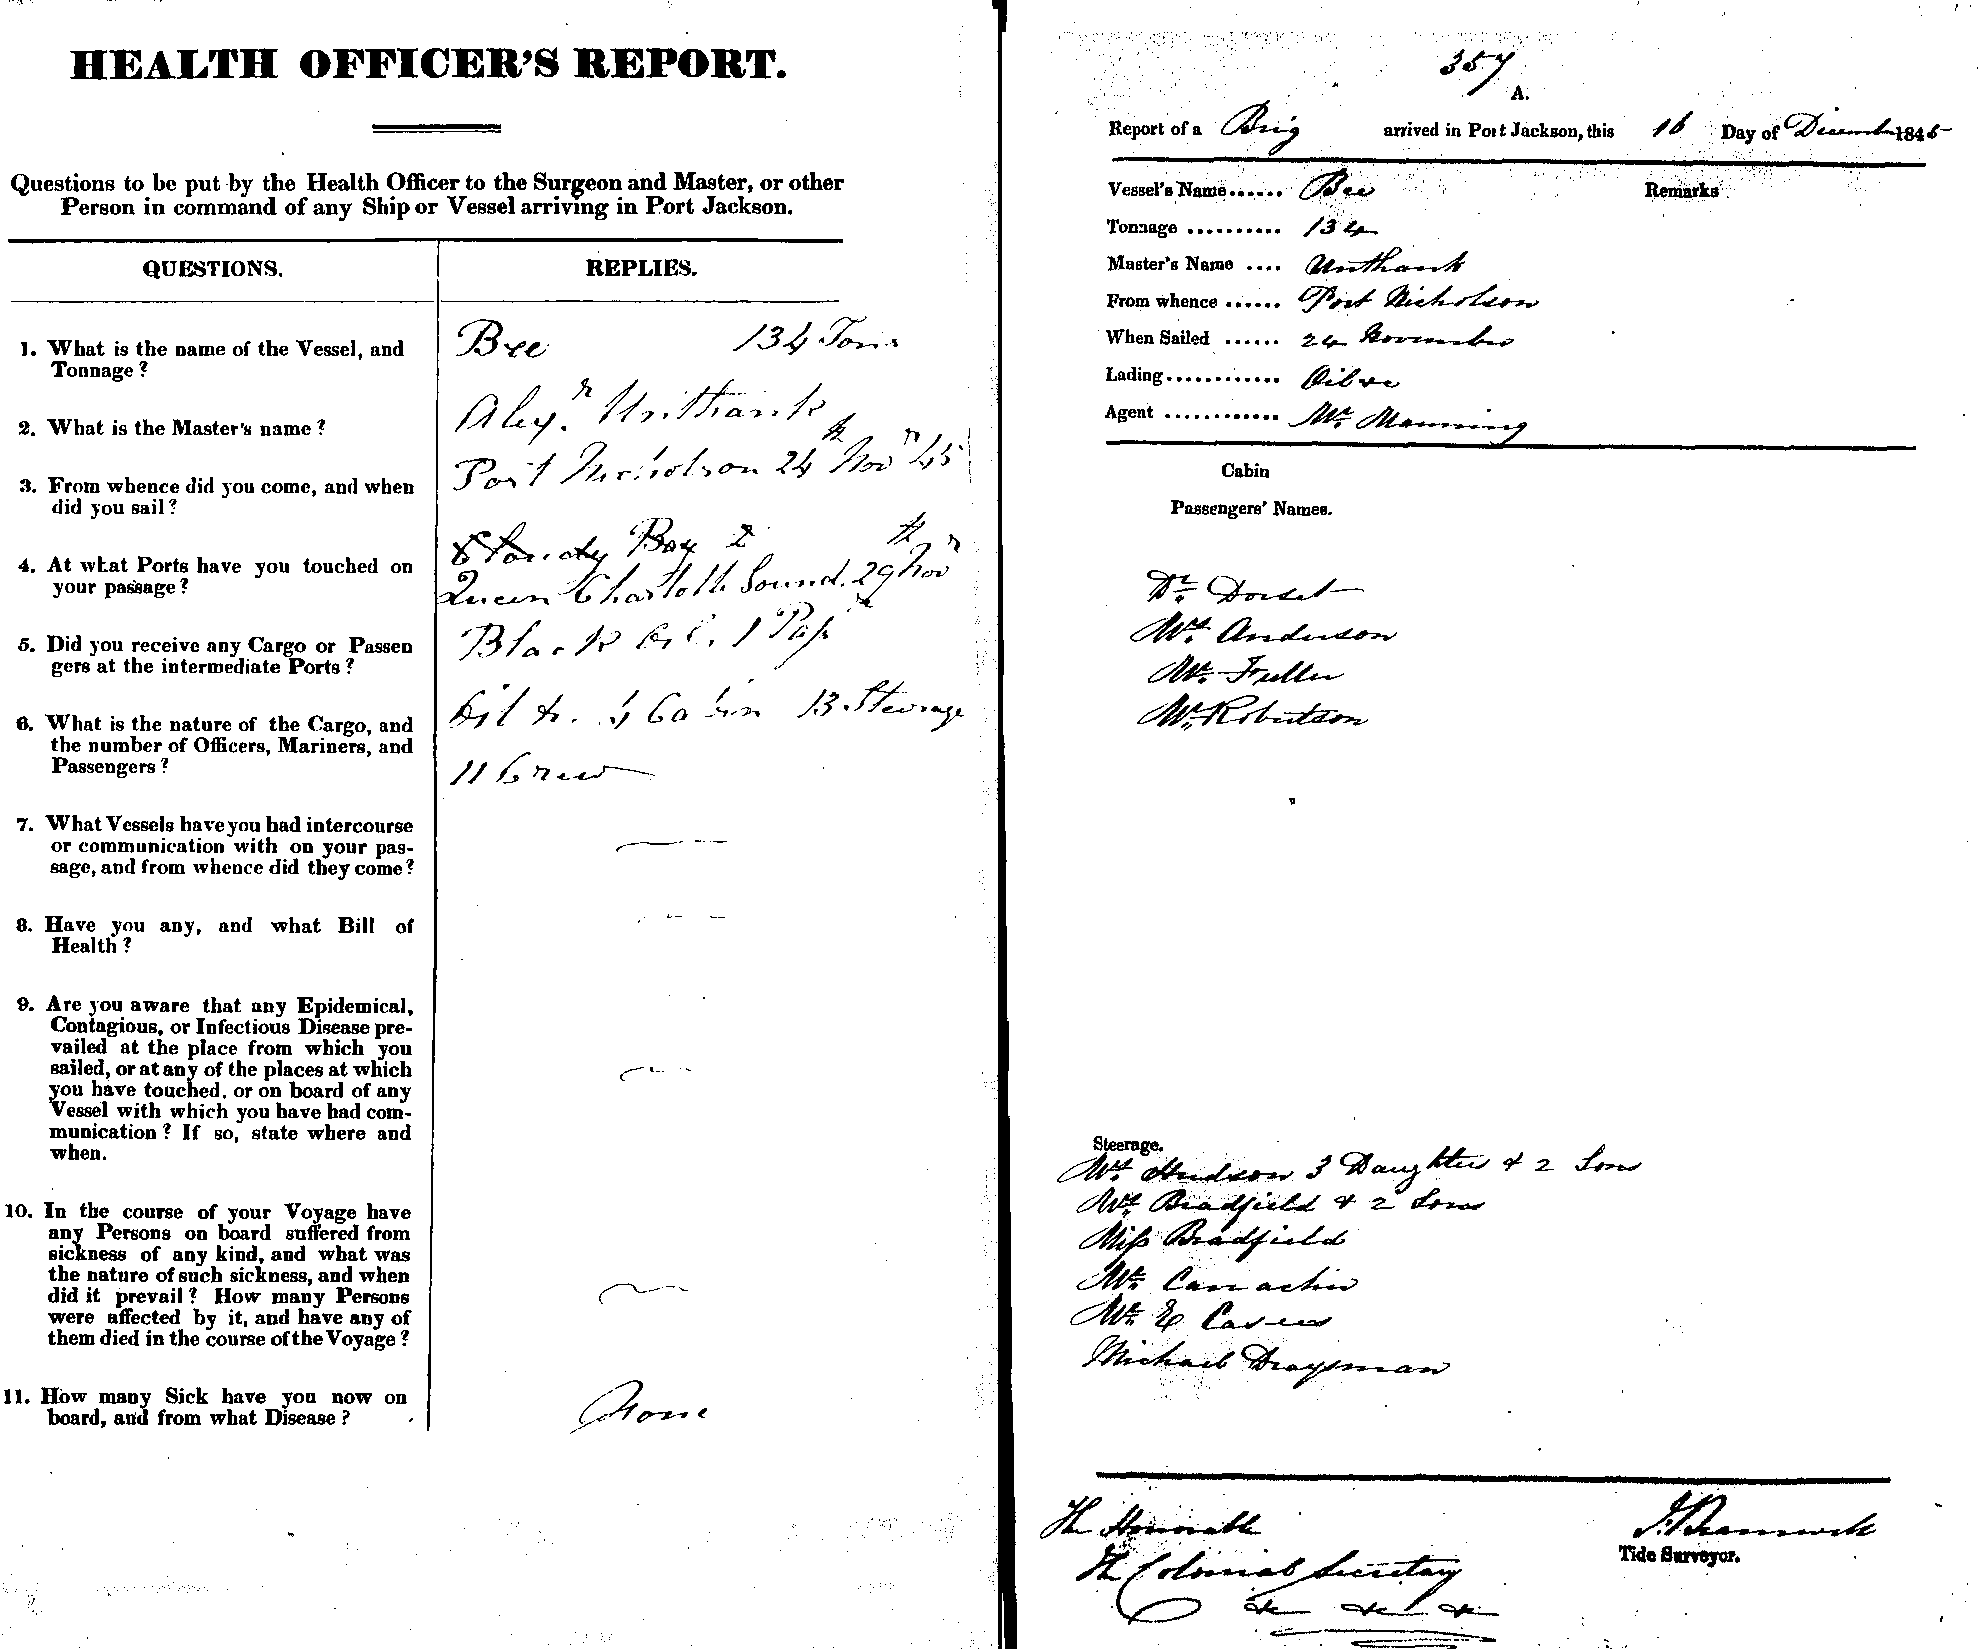 HEALTH OFFICER'S REPORT.
Questions to be put by the Health Officer to the Surgeon and Master, or other
Person in command of any Ship or Vessel arriving in Port Jackson.
QUESTIONS.
REPLIES.
1. What is the name of the Vessel, and
Tonnage?
Bee 134 Tons
2. What is the Master's name?
Alexr. Unthank
3. From whence did you come, and when
did you sail?
Port Nicholson 24th Novr 45
4. At what Ports have you touched on
your passage?
Bay
Queen Charlotte Sound. 29th Novr
5. Did you receive any Cargo or Passen
gers at the intermediate Ports?
Black Oil. 1 Pass
6. What is the nature of the Cargo, and
the number of Officers, Mariners, and
Passengers?
Oil &c. 4 Cabin 13 Steerage
11 Crew
7. What Vessels have you had intercourse
or communication with on your pas-
sage, and from whence did they come?
8. Have you any, and what Bill of
Health?
9. Are you aware that any Epidemical,
Contagious, or Infectious Disease pre-
vailed at the place from which you
sailed, or at any of the places at which
you have touched, or on board of any
Vessel with which you have had com-
munication? If so, state where and
when.
10. In the course of your Voyage have
any Persons on board suffered from
sickness of any kind, and what was
the nature of such sickness, and when
did it prevail? How many Persons
were affected by it, and have any of
them died in the course of the Voyage?
11. How many Sick have you now on
board, and from what Disease?
None
357
A.
Report of a Brig arrived in Port Jackson, this 16 Day of December 1845
Vessel's Name...... Bee
Remarks
Tonnage .......... 134
Master's Name .... Unthank
From whence ...... Port Nicholson
When Sailed ...... 24 November
Lading............ Oil &c
Agent ............ Mr. Manning
Cabin
Passengers' Names.
Dr. Dorset
Mr. Anderson
Mr. Fuller
Mr. Robertson
Steerage.
Mrs. Hudson 3 Daughters & 2 Sons
Mrs. Bradfield & 2 Sons
Miss Bradfield
Mr.
Mr. E
Michael Dragsman
The Honorable
The Colonial Secretary
&c &c &c
Tide Surveyor.